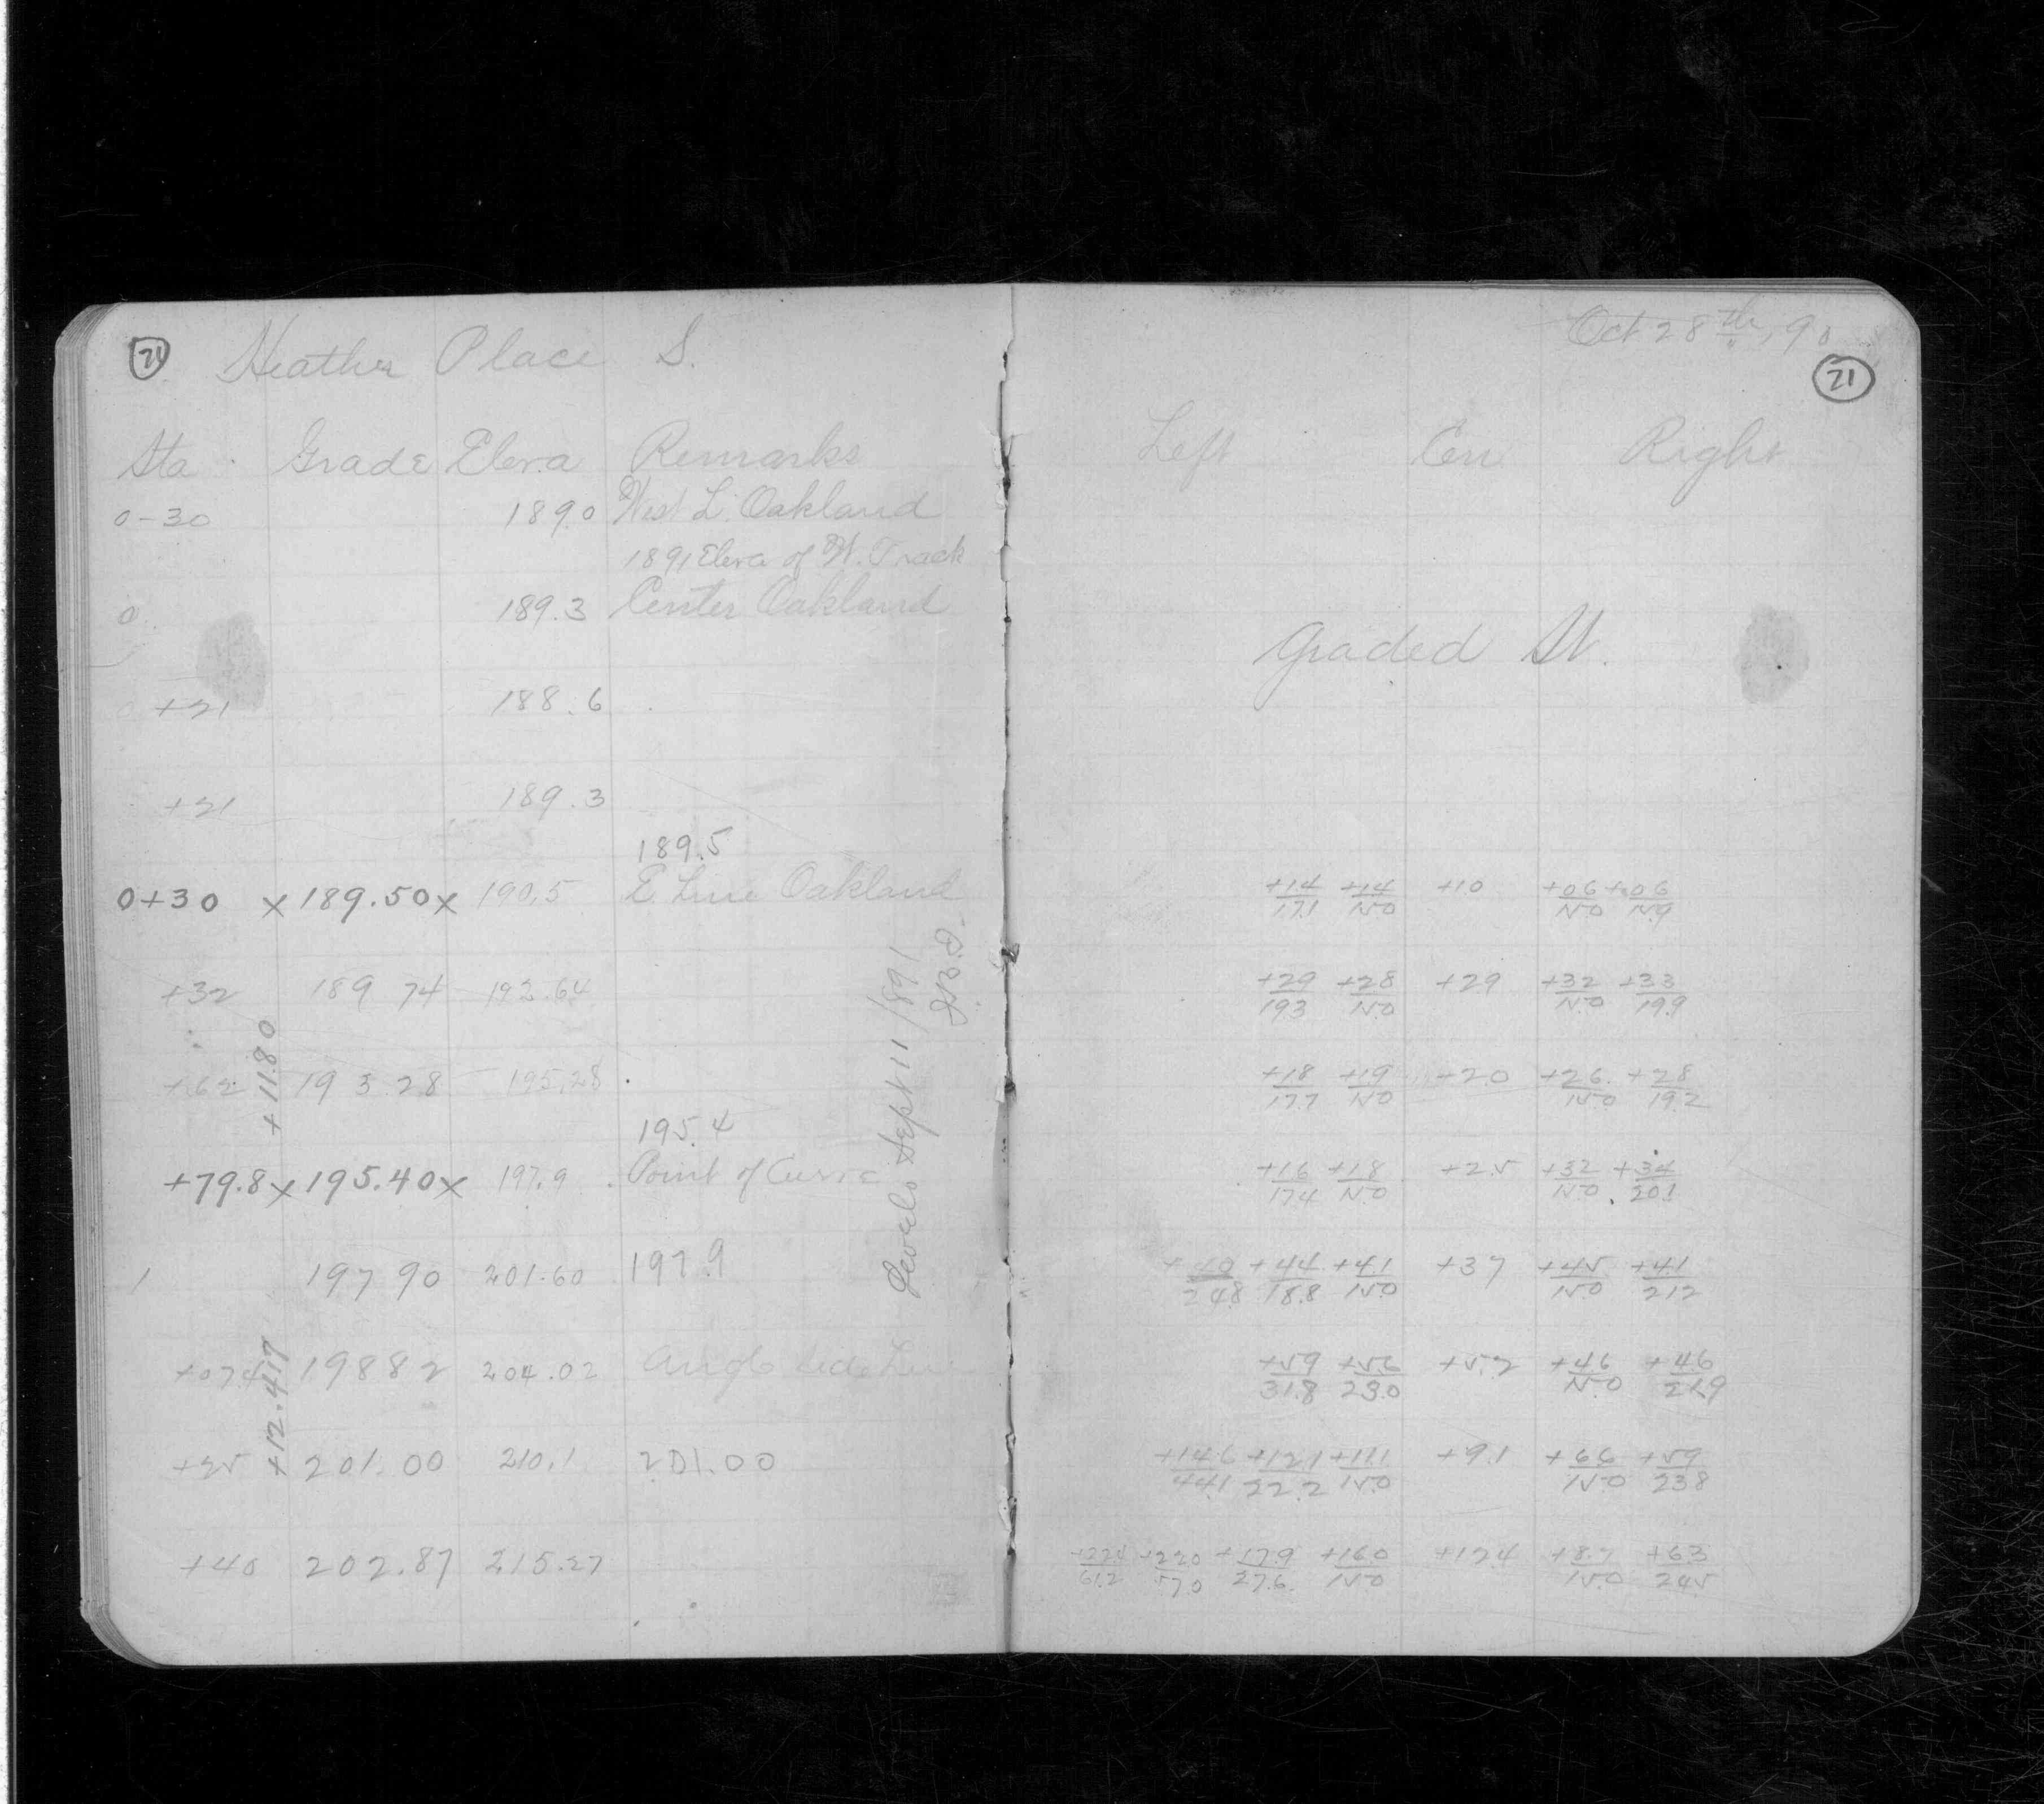 21 Heather Place S.
Sta Grade Eleva Remarks
0-30 189.0 West L. Oakland
1891 Eleva of W. Track
0 189.3 Center Oakland
+21 188.6
+21 189.3
189.5
0+30 x 189.50 x 190.5 E Line Oakland
+32 189 74 192.64
+62 193 28 195.28
195.4
+79.8 x 195.40 x 197.9 Point of Curve
1 197 90 201.60 197.9
+07 198 82 204.02 Angle Side Line
+25 201.00 210.1 201.00
+40 202.87 215.27
+11.80
+12.417
Levels Sept 11/1891
Oct 28th, 90
21
Left Cen Right
Graded St.
+14/17.1 +14/15.0 +10 +06/15.0 +06/15.9
+29/193 +28/15.0 +29 +32/15.0 +33/19.9
+18/17.7 +19/15.0 +20 +26/15.0 +28/19.2
+16/17.4 +18/15.0 +2.5 +32/15.0 +34/20.1
+40/24.8 +44/18.8 +4.1/15.0 +37 +45/15.0 +41/212
+59/31.8 +56/23.0 +5.2 +46/15.0 +46/21.9
+14.6/44.1 +12.1/22.2 +11.1/15.0 +9.1 +66/15.0 +59/238
+224/61.2 +220/57.0 +17.9/27.6 +16.0/15.0 +124 +8.7/15.0 +63/245